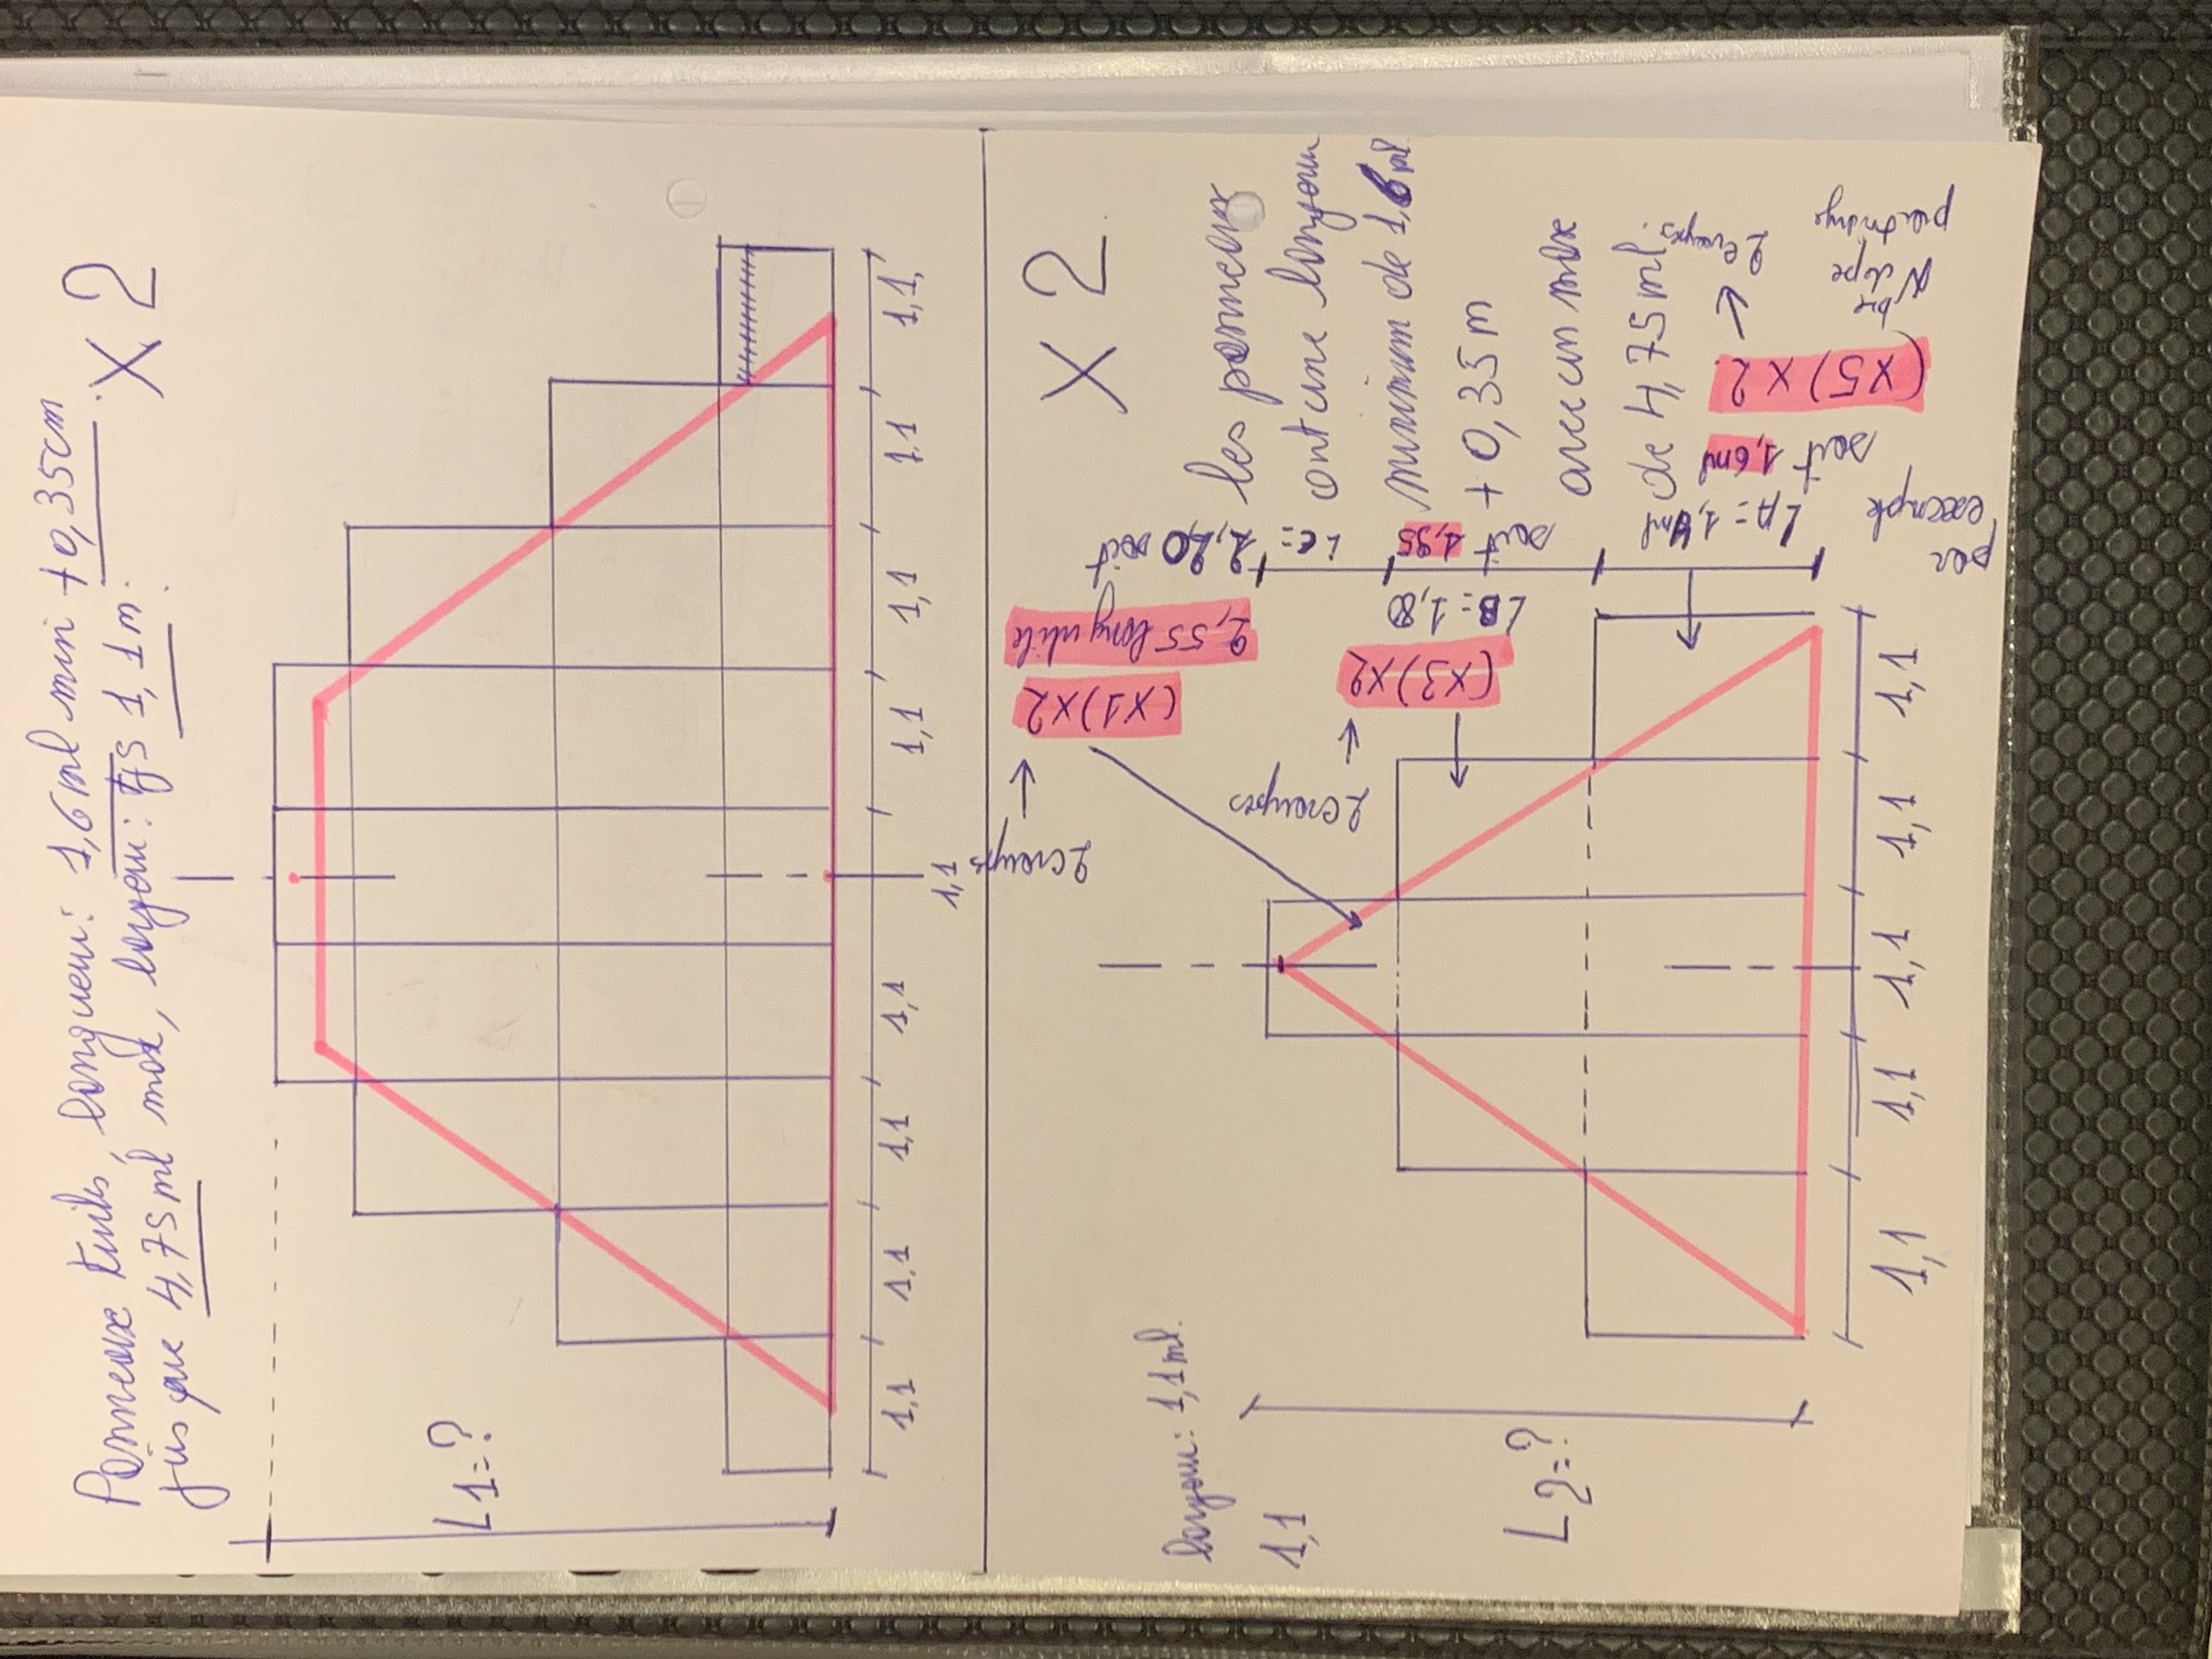 Panneaux tuiles, longueur: 1,6 ml min + 0,35cm
jusque 4,75 ml max, largeur: tjs 1,1 m.
X 2
L1=?
1,1
1,1
1,1
1,1
1,1
1,1
1,1
1,1
1,1
X 2
les panneaux
ont une longueur
minimum de 1,6 ml
+ 0,35 m
avec un max
de 4,75 ml.
largeur: 1,1 ml.
1,1
L2=?
1,1
1,1
1,1
1,1
1,1
par
exemple
LA= 1,4ml
soit 1,6ml
(X5) X 2
→ 2 croupes
LB= 1,80
soit 1,95
(X3)X2
→ 2 croupes
LC=
2,20 soit
2,55 long utile
(X1)X2
→ 2 croupes